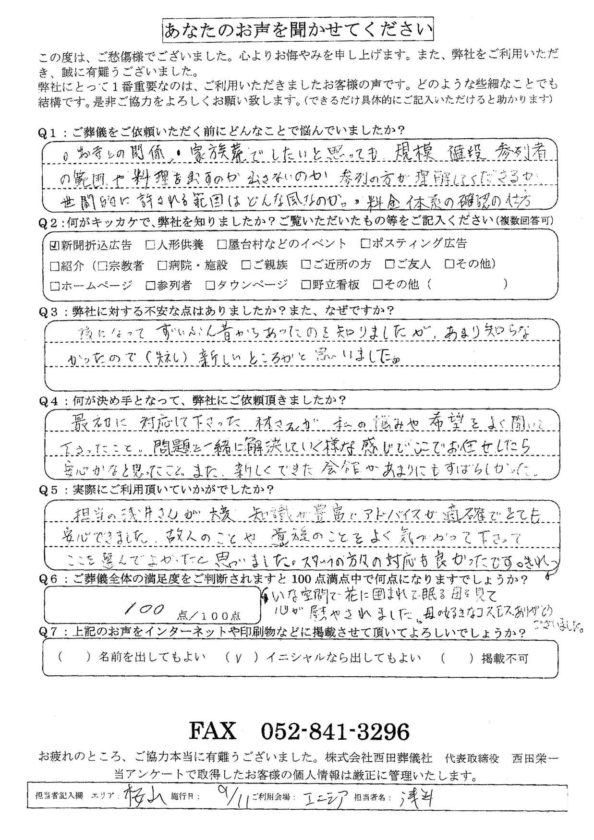 あなたのお声を聞かせてください
この度は、ご愁傷様でございました。心よりお悔やみを申し上げます。また、弊社をご利用いただ
き、誠に有難うございました。
弊社にとって1番重要なのは、ご利用いただきましたお客様の声です。どのような些細なことでも
結構です。是非ご協力をよろしくお願い致します。(できるだけ具体的にご記入いただけると助かります)
Q1:ご葬儀をご依頼いただく前にどんなことで悩んでいましたか?
。お寺との関係、・家族葬でしたいと思っても、規模 値段 参列者
の範囲や料理を出すのか出さないのか 参列の方が理解してくださるか
世間的に許される範囲はどんな風なのか。・料金体系の確認の仕方
Q2:何がキッカケで、弊社を知りましたか?ご覧いただいたもの等をご記入ください(複数回答可)
☑新聞折込広告 □人形供養 □屋台村などのイベント □ポスティング広告
□紹介(□宗教者 □病院・施設 □ご親族 □ご近所の方 □ご友人 □その他)
□ホームページ □参列者 □タウンページ □野立看板 □その他( )
Q3:弊社に対する不安な点はありましたか?また、なぜですか?
後になって ずいぶん昔からあったのを知りましたが、あまり知らな
かったので(失礼)新しいところかと思いました。
Q4:何が決め手となって、弊社にご依頼頂きましたか?
最初に 対応して下さった 林さんが 私の悩みや希望をよく聞いて
下さったこと。問題を一緒に解決していく様な感じでここでお任せしたら
安心かなと思ったこと。また、新しくできた 会館があまりにもすばらしかった。
Q5:実際にご利用頂いていかがでしたか?
担当の浅井さんが 知識が豊富でアドバイスが的確でとても
安心できました。故人のことや 遺族のことをよく気づかって下さって
ここを選んでよかったと思いました。スタッフの方々の対応も良かったです。きれ
いな空間で花に囲まれて眠る母を見て
心が慰やされました。母の好きなコスモスありがとう
ございました。
Q6:ご葬儀全体の満足度をご判断されますと100点満点中で何点になりますでしょうか?
100 点/100点
Q7:上記のお声をインターネットや印刷物などに掲載させて頂いてよろしいでしょうか?
( )名前を出してもよい (√)イニシャルなら出してもよい ( )掲載不可
FAX 052-841-3296
お疲れのところ、ご協力本当に有難うございました。株式会社西田葬儀社 代表取締役 西田栄一
当アンケートで取得したお客様の個人情報は厳正に管理いたします。
担当者記入欄 エリア:桜山 施行日:9/11 ご利用会場:エニシア 担当者名:浅井